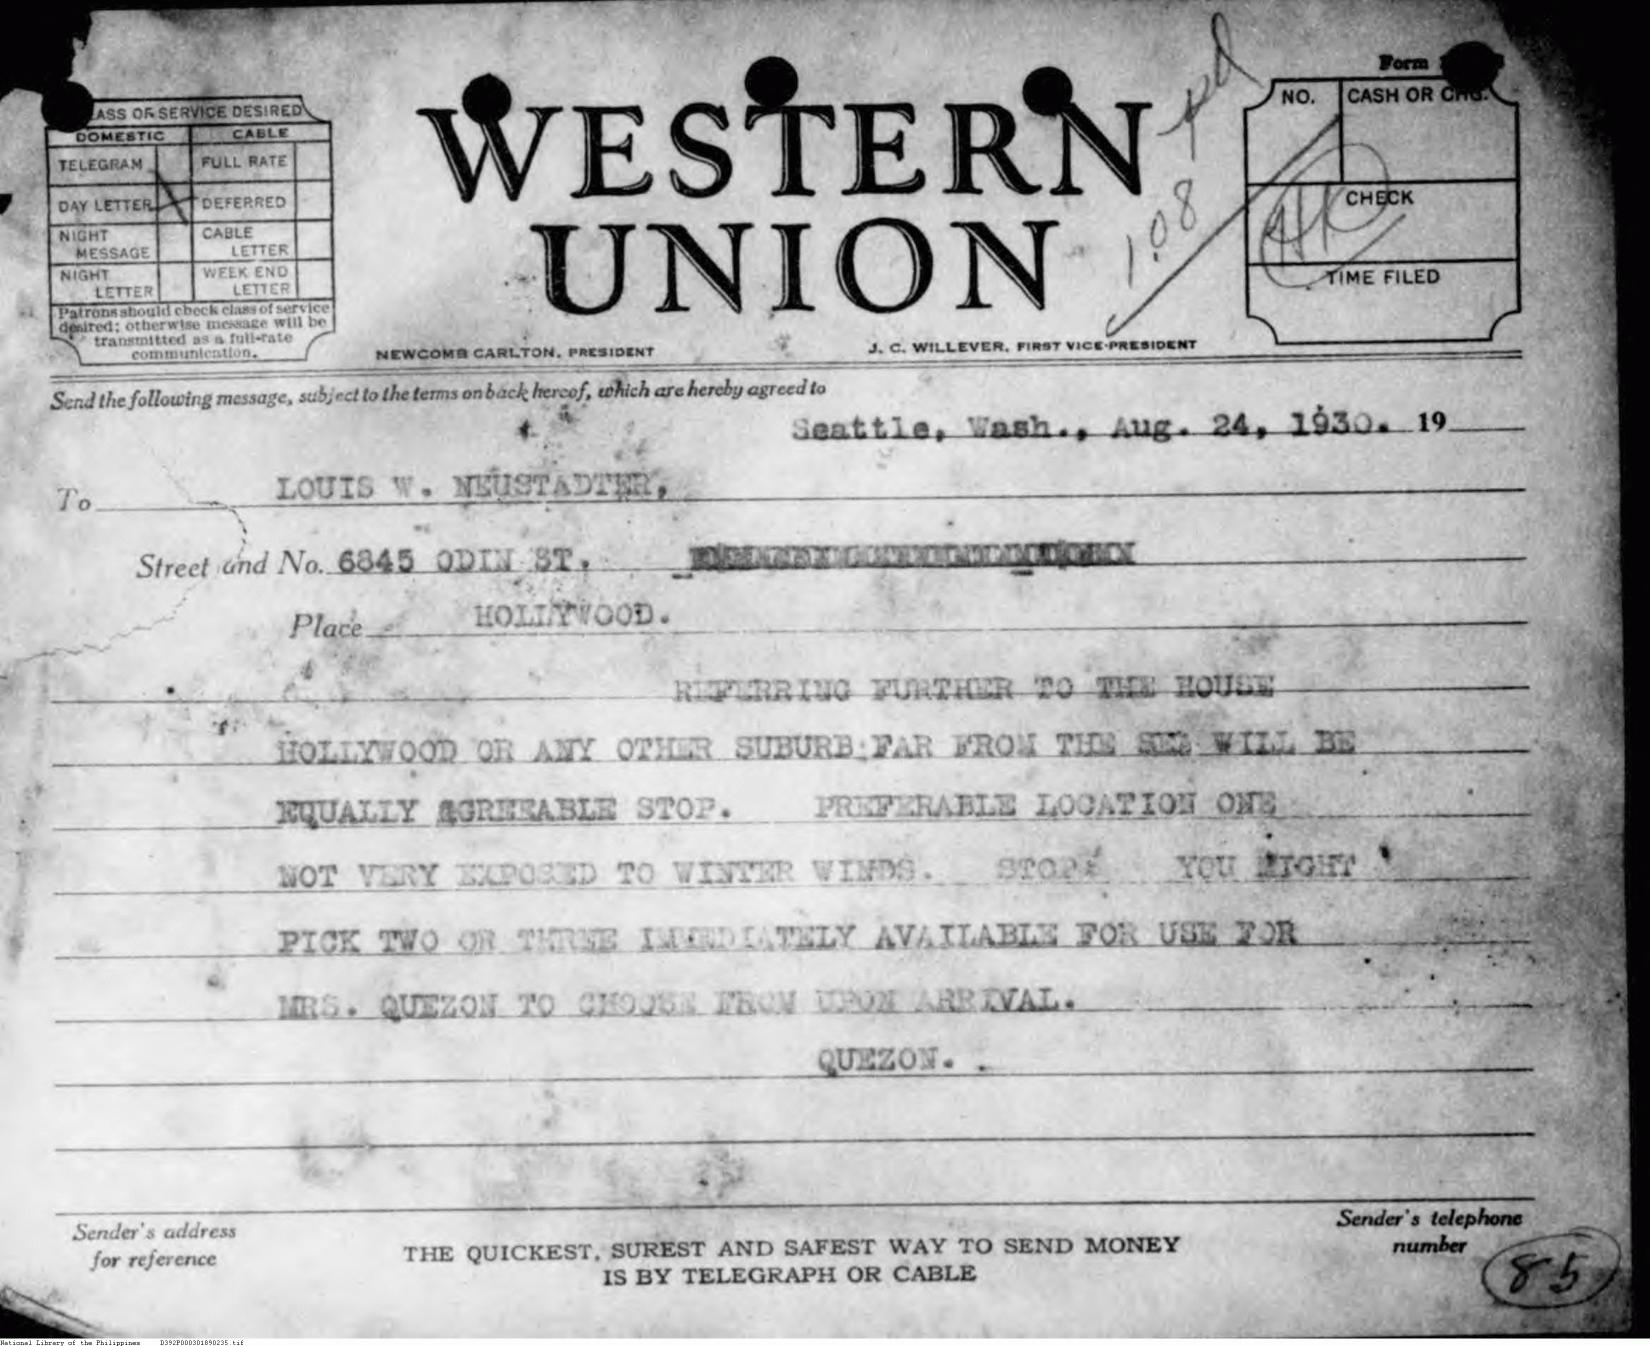 Form
CLASS OF SERVICE DESIRED
DOMESTIC CABLE
TELEGRAM FULL RATE
DAY LETTER DEFERRED
NIGHT MESSAGE CABLE LETTER
NIGHT LETTER WEEK END LETTER
Patrons should check class of service
desired; otherwise message will be
transmitted as a full-rate
communication.
WESTERN
UNION
1.08 pd
NO. CASH OR CHG.
CHECK
TIME FILED
NEWCOMB CARLTON, PRESIDENT J. C. WILLEVER, FIRST VICE-PRESIDENT
Send the following message, subject to the terms on back hereof, which are hereby agreed to
Seattle, Wash., Aug. 24, 1930. 19
To LOUIS W. NEUSTADTER,
Street and No. 6845 ODIN ST.
Place HOLLYWOOD.
REFERRING FURTHER TO THE HOUSE
HOLLYWOOD OR ANY OTHER SUBURB FAR FROM THE SEA WILL BE
EQUALLY AGREEABLE STOP. PREFERABLE LOCATION ONE
NOT VERY EXPOSED TO WINTER WINDS. STOP. YOU MIGHT
PICK TWO OR THREE IMMEDIATELY AVAILABLE FOR USE FOR
MRS. QUEZON TO CHOOSE FROM UPON ARRIVAL.
QUEZON.
Sender's address
for reference
THE QUICKEST, SUREST AND SAFEST WAY TO SEND MONEY
IS BY TELEGRAPH OR CABLE
Sender's telephone
number
85
National Library of the Philippines D392P000301890235.tif